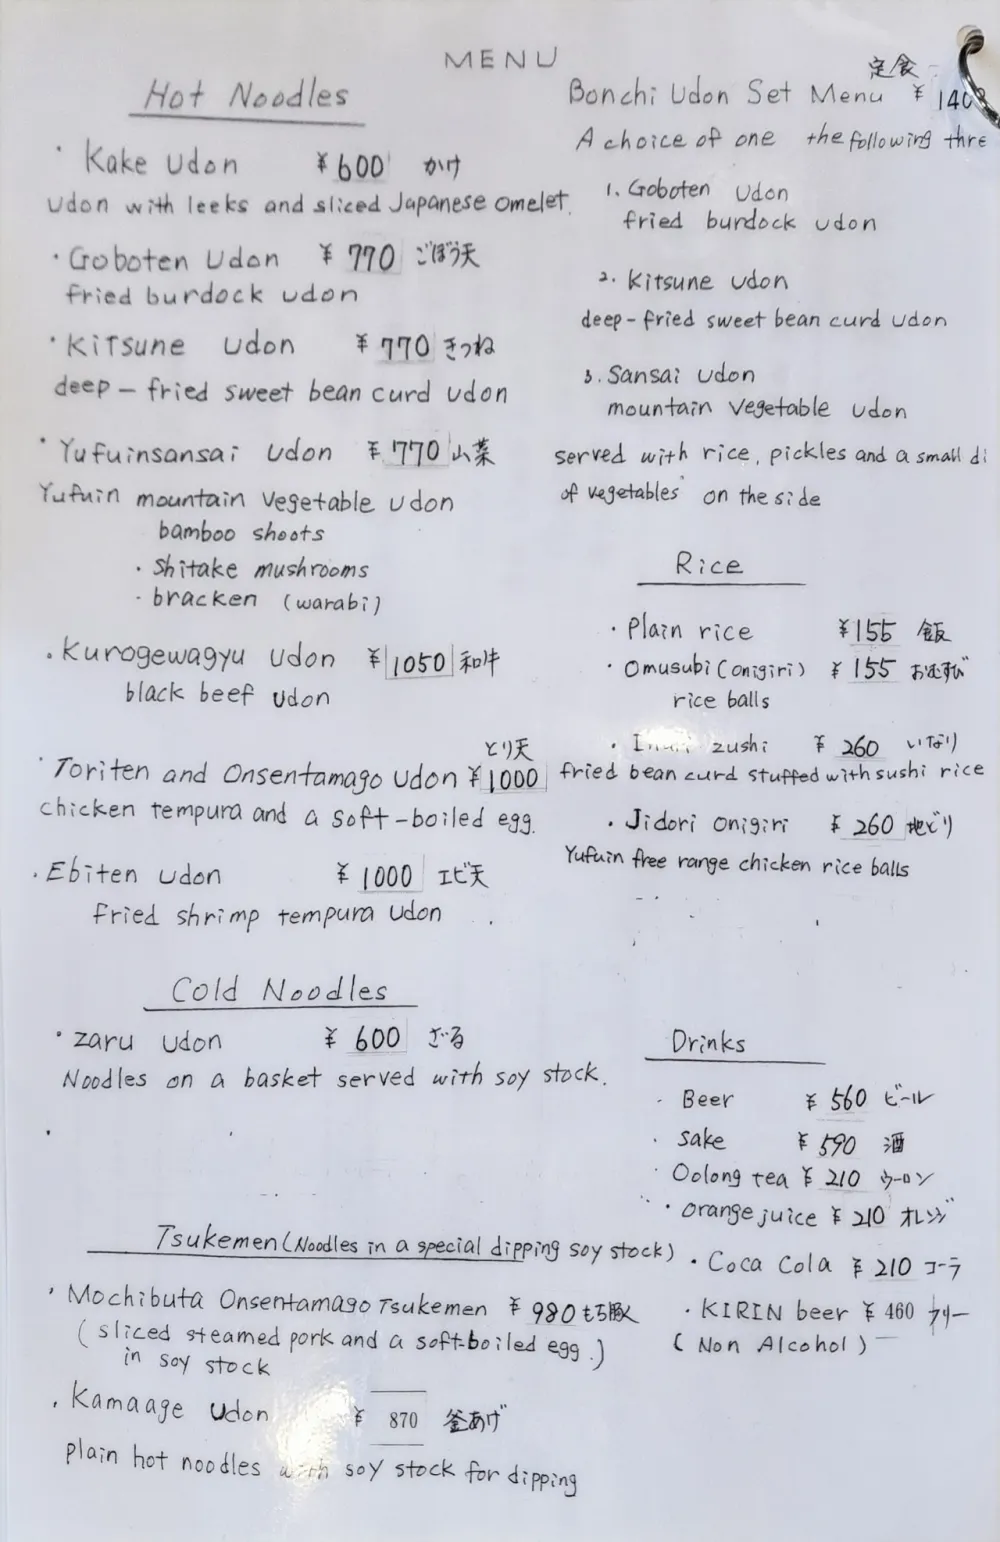 MENU
Hot Noodles
・Kake Udon ¥600 かけ
Udon with leeks and sliced Japanese omelet.
・Goboten Udon ¥770 ごぼう天
fried burdock udon
・Kitsune Udon ¥770 きつね
deep-fried sweet bean curd udon
・Yufuinsansai Udon ¥770 山菜
Yufuin mountain vegetable udon
bamboo shoots
・shitake mushrooms
・bracken (warabi)
・Kurogewagyu Udon ¥1050 和牛
black beef udon
とり天
・Toriten and Onsentamago Udon ¥1000
chicken tempura and a soft-boiled egg.
・Ebiten udon ¥1000 エビ天
fried shrimp tempura udon
Cold Noodles
・zaru udon ¥600 ざる
Noodles on a basket served with soy stock.
Tsukemen (Noodles in a special dipping soy stock)
・Mochibuta Onsentamago Tsukemen ¥980 もち豚
(sliced steamed pork and a soft-boiled egg.)
in soy stock
・Kamaage udon ¥870 釜あげ
plain hot noodles with soy stock for dipping
定食
Bonchi Udon Set Menu ¥140
A choice of one the following thre
1. Goboten udon
fried burdock udon
2. Kitsune udon
deep-fried sweet bean curd udon
3. Sansai udon
mountain vegetable udon
served with rice, pickles and a small di
of vegetables on the side
Rice
・Plain rice ¥155 飯
・Omusubi (onigiri) ¥155 おむすび
rice balls
・zushi ¥260 いなり
fried bean curd stuffed with sushi rice
・Jidori onigiri ¥260 地どり
Yufuin free range chicken rice balls
Drinks
・Beer ¥560 ビール
・sake ¥590 酒
・Oolong tea ¥210 ウーロン
・orange juice ¥210 オレンジ
・Coca Cola ¥210 コーラ
・KIRIN beer ¥460 フリー
(Non Alcohol)